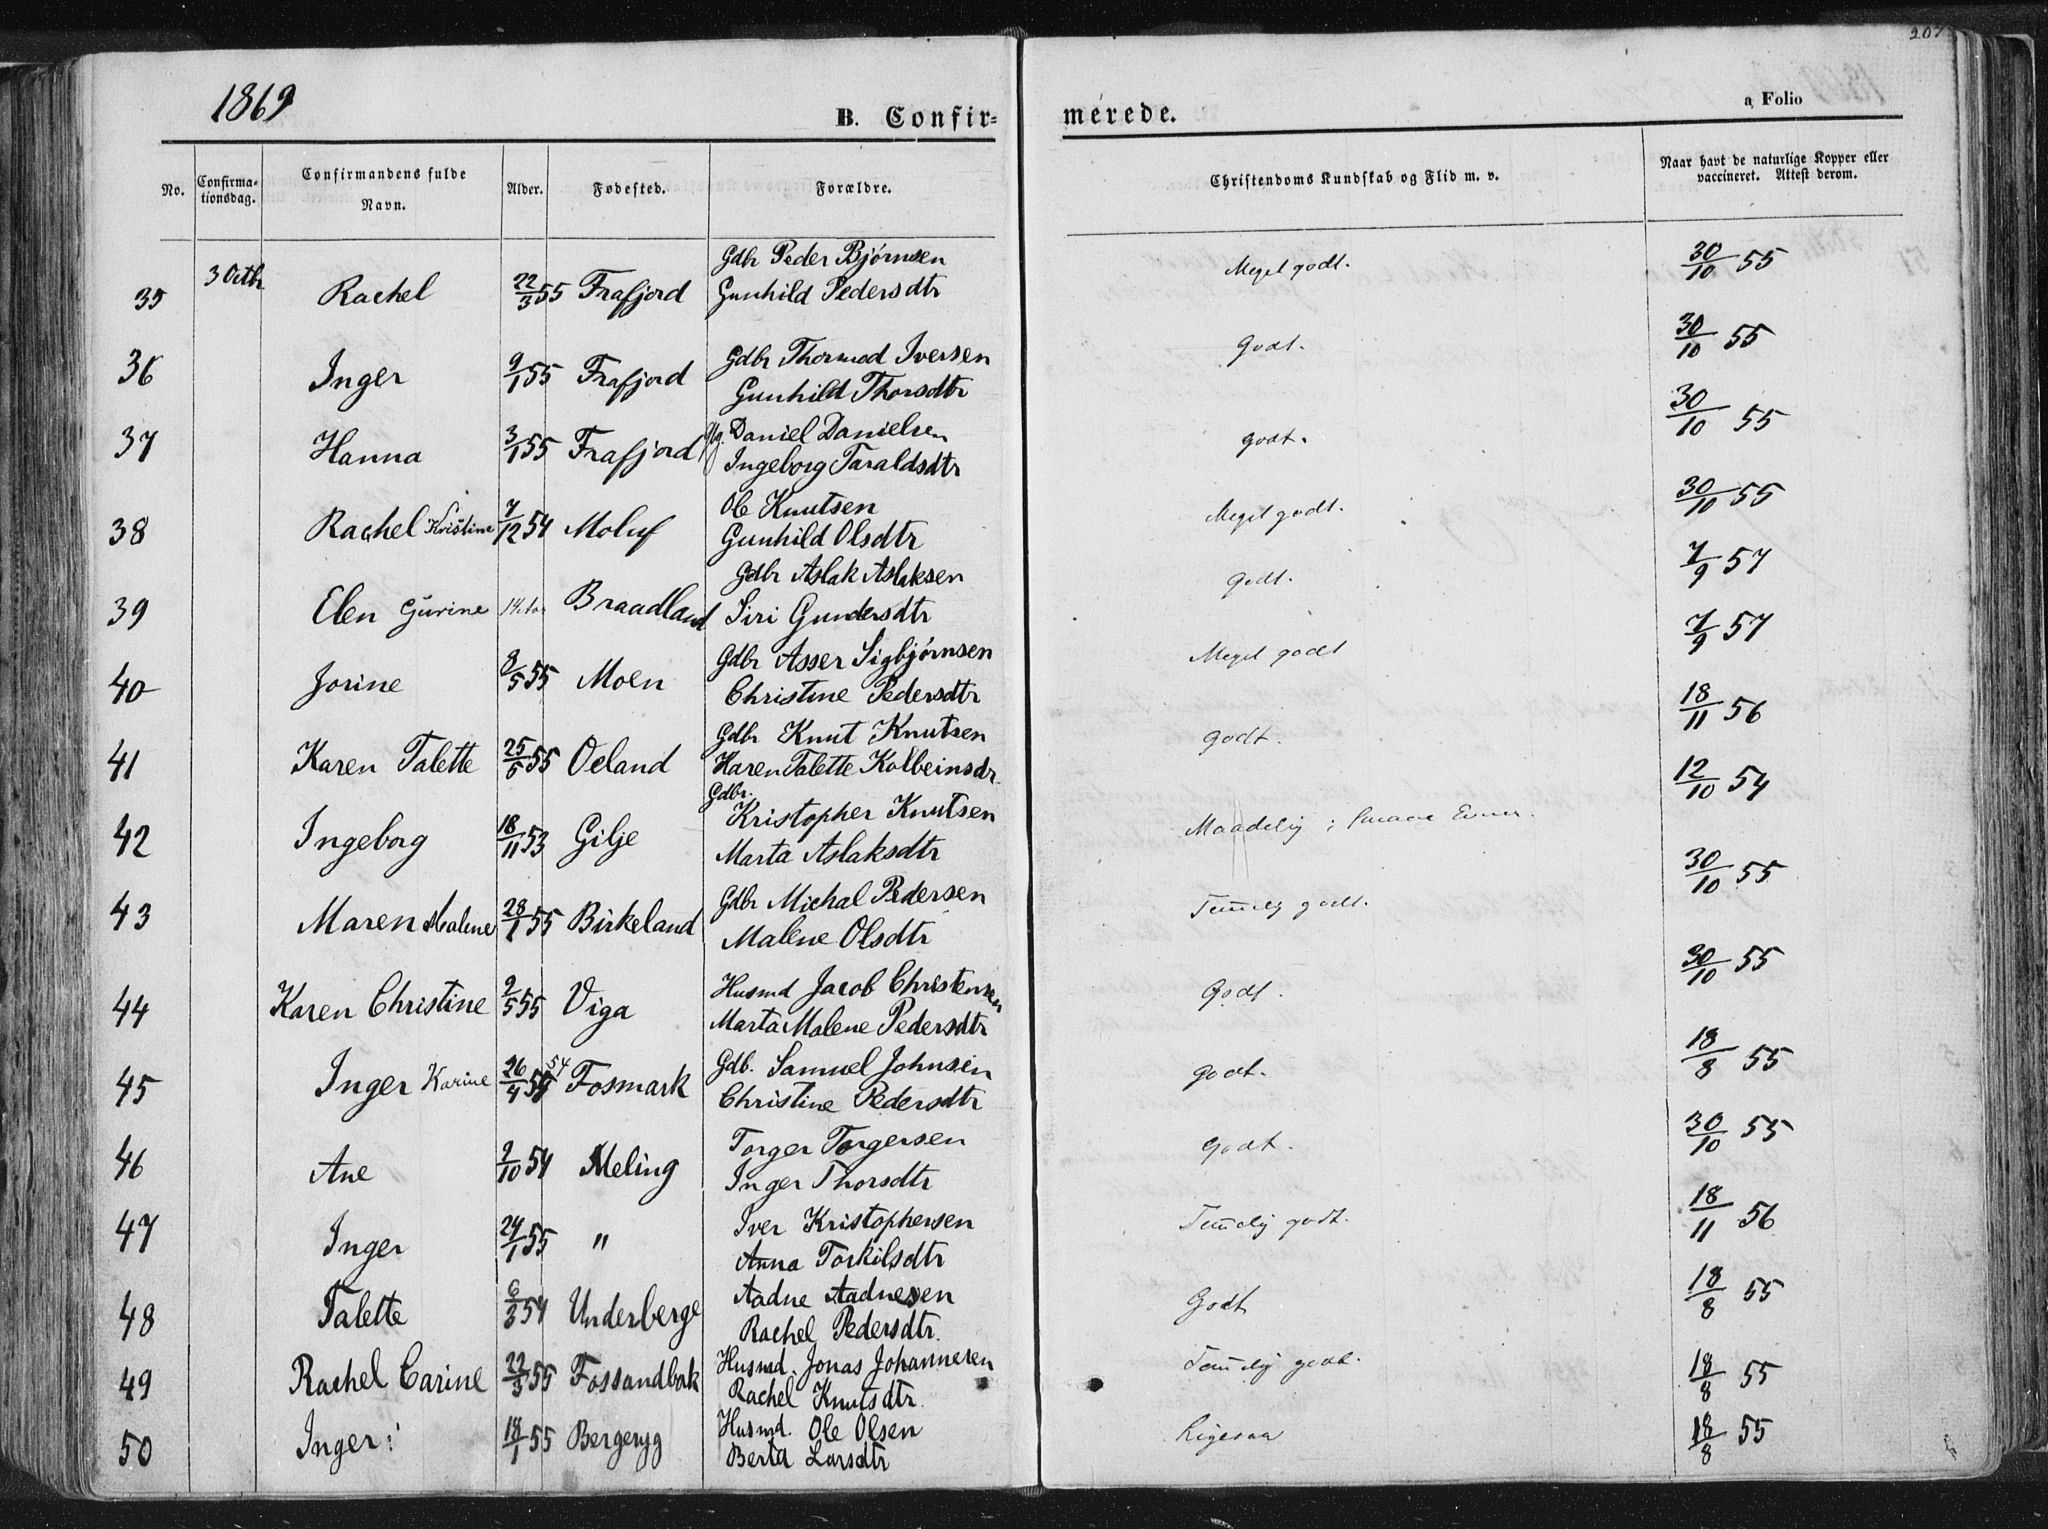 207
1869
B. Confir=
merede.
a Folio
No.
Confirma-
tionsdag.
Confirmandens fulde
Navn.
Alder.
Fødested.
Forældre.
Christendoms Kundskab og Flid m. v.
Naar havt de naturlige Kopper eller
vaccineret. Attest derom.
35 3 Octbr Rachel 22/3 55 Frafjord Gdbr Peder Bjørnsen Meget godt. 30/10 55
Gunhild Pedersdtr
36 Inger 9/1 55 Frafjord Gdbr Thormod Iversen Godt. 30/10 55
Gunhild Thorsdtr
37 Hanna 3/1 55 Frafjord Daniel Danielsen godt. 30/10 55
Ingeborg Taraldsdtr
38 Rachel Kristine 7/12 54 Moluf Ole Knutsen Meget godt. 30/10 55
Gunhild Olsdtr
39 Elen Gurine Braadland Gdbr Aslak Aslaksen godt. 7/9 57
Siri Gundersdtr
40 Jorine 8/5 55 Moen Gdbr Asser Sigbjørnsen Meget godt 7/9 57
Christine Pedersdtr
41 Karen Talette 25/5 55 Oeland Gdbr Knut Knutsen godt. 18/11 56
Karen Talette Kolbeinsdr.
42 Ingeborg 18/11 53 Gilje Gdbr. Kristopher Knutsen Maadelig; smaae Evner. 12/10 54
Marta Aslaksdtr
43 Maren Malene 28/1 55 Birkeland Gdbr Michal Pedersen Temelig godt. 30/10 55
Malene Olsdtr
44 Karen Christine 2/5 55 Viga Husmd Jacob Christensen Godt. 30/10 55
Marta Malene Pedersdtr
45 Inger Karine 26/4 54 Fosmark Gdb. Samuel Johnsen godt. 18/8 55
Christine Pedersdtr
46 Ane 2/10 54 Meling Torger Torgersen Godt. 30/10 55
Inger Thorsdtr
47 Inger 24/1 55 " Iver Kristophersen Temelig godt. 18/11 56
Anna Torkilsdtr
48 Talette 6/3 54 Underberge Aadne Aadnesen Godt 18/8 55
Rachel Pedersdtr.
49 Rachel Carine 22/3 55 Fossandbak Husmd. Jonas Johannesen Temelig godt. 18/8 55
Rachel Knutsdtr.
50 Inger 18/1 55 Bergeryg Husmd. Ole Olsen Ligesaa 18/8 55
Berta Larsdtr